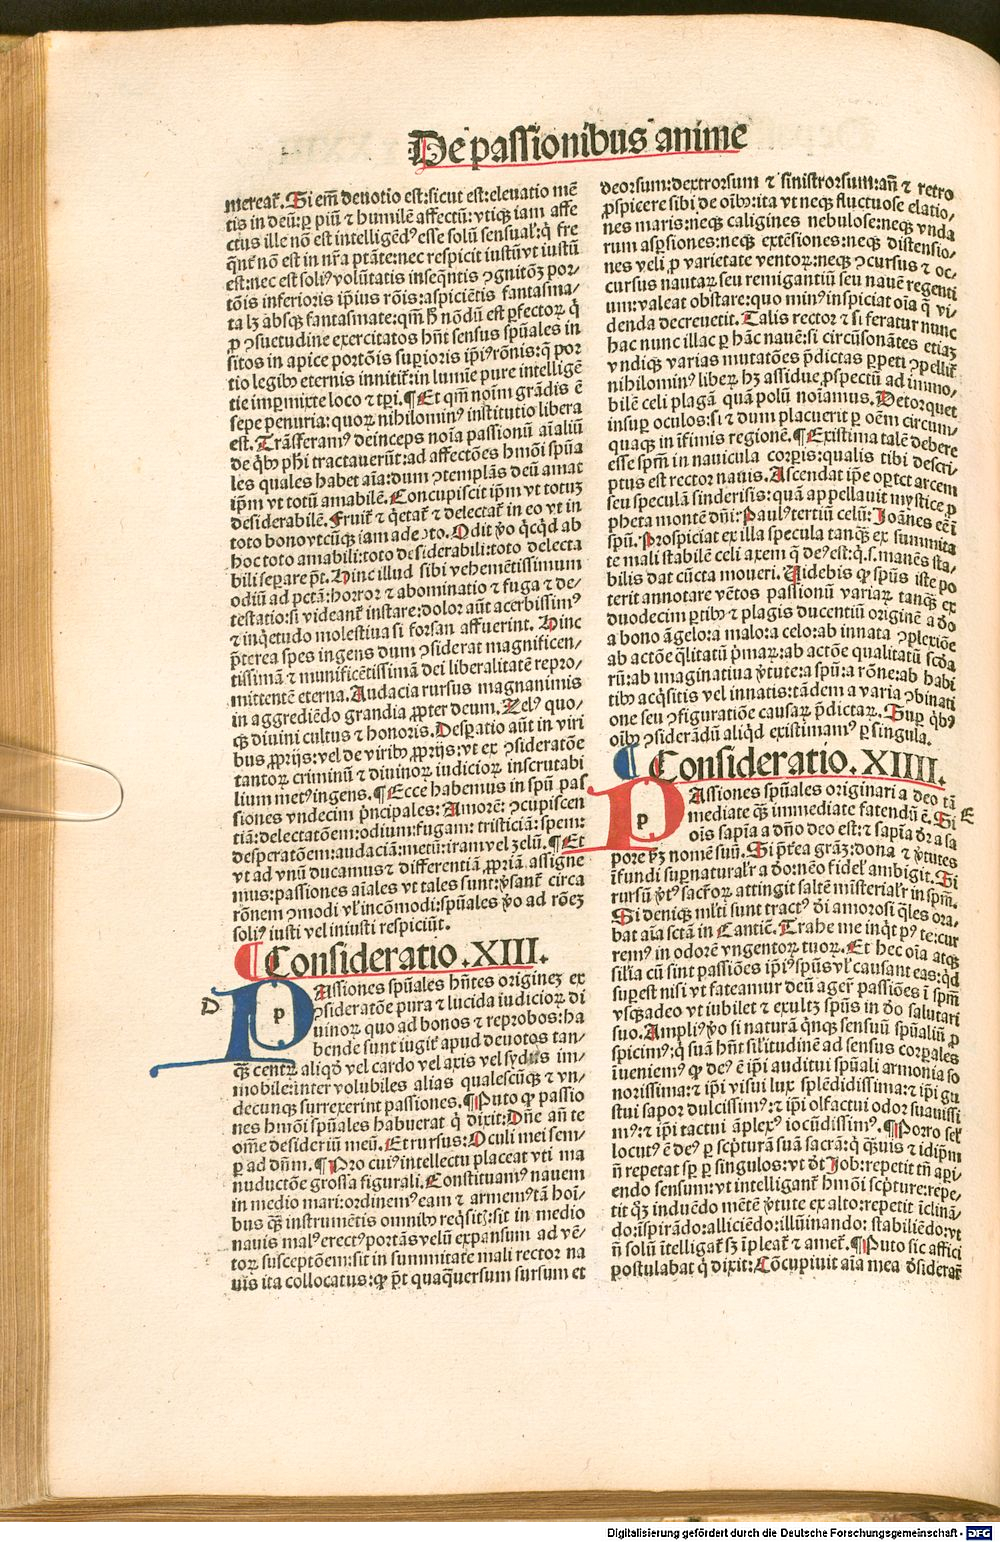 De passionibus anime
mereat᷑. Si em̄ deuotio est: sicut est: eleuatio mē
tis in deū: ꝑ piū ⁊ humilē affectū: vtiqꝫ iam affe
ctus ille nō est intelligēdꝰ esse solū sensual᷑: q̇ fre
qn̄t᷑ nō est in nr̄a ptāte: nec respicit iustū vt iustū
est: nec est soliꝰ volūtatis inseqn̄tis ꝯgnitōꝫ por-
tōis inferioris ip̄ius rōis: aspiciētis fantasma-
ta lꝫ absqꝫ fantasmate: qm̄ h̄ nōdū est ꝑfectoꝝ q̇
ꝓ ꝯsuetudine exercitatos hn̄t sensus spūales in
sitos in apice portōis suꝑioris ip̄iꝰ rōnis: q̄ por
tio legibꝰ eternis innitit᷑: in lumīe pure intelligē
tie imꝑmixte loco ⁊ tꝑi. ¶ Et qm̄ noīm grādis ē
sepe penuria: quoꝝ nihilominꝰ institutio libera
est. Trāsferamꝰ deinceps noīa passionū aīaliū
de q̇bꝰ ph̄i tractauerūt: ad affectōes hmōi spūa
les quales habet aīa: dum ꝯtemplās deū amat
ip̄m vt totū amabilē. Concupiscit ip̄m vt totuꝫ
desiderabilē. Fruit᷑ ⁊ q̇etat᷑ ⁊ delectat᷑ in eo vt in
toto bono vtcūqꝫ iam adepto. Odit v̓o q̇cq̇d ab
hoc toto amabili: toto desiderabili: toto delecta
bili seꝑare pōt. Hinc illud sibi vehemētissimum
odiū ad pctām: horror ⁊ abominatio ⁊ fuga ⁊ de-
testatio: si videant᷑ instare: dolor aūt acerbissimꝰ
⁊ inq̇etudo molestiua si forsan affuerint. Hinc
p̄terea spes ingens dum ꝯsiderat magnificen-
tissimā ⁊ munificētissimā dei liberalitatē repro-
mittentē eterna. Audacia rursus magnanimis
in aggrediēdo grandia ꝓpter deum. Zelꝰ quo-
qꝫ diuini cultus ⁊ honoris. Desꝑatio aūt in viri
bus ꝓprijs: vel de viribꝰ ꝓprijs: vt ex ꝯsideratōe
tantoꝝ criminū ⁊ diuinoꝝ iudicioꝝ inscrutabi
lium metꝰ ingens. ¶ Ecce habemus in spū pas
siones vndecim p̄ncipales: Amorē: ꝯcupiscen
tiā: delectatōem: odium: fugam: tristiciā: spem:
desperatōem: audaciā: metū: iram vel zelū. ¶ Et
vt ad vnū ducamus ⁊ differentiā ꝓpriā assigne
mus: passiones aīales vt tales sunt: v̓sant᷑ circa
rōnem ꝯmodi vl᷑ incōmodi: spūales v̓o ad rōeꝫ
soliꝰ iusti vel iniusti respiciūt.
¶ Consideratio .XIII.
D
PAssiones spūales hn̄tes origineꝫ ex
ꝯsideratōe pura ⁊ lucida iudicioꝝ di
uinoꝝ quo ad bonos ⁊ reprobos: ha
bende sunt iugit᷑ apud deuotos tan-
qꝫ centꝝ aliqḋ vel cardo vel axis vel sydus im-
mobile: inter volubiles alias qualescūqꝫ ⁊ vn-
decunqꝫ surrexerint passiones. ¶ Puto ꝙ passio
nes hmōi spūales habuerat q̇ dixit: Dn̄e an̄ te
om̄e desideriū meū. Et rursus: Oculi mei sem-
ꝑ ad dn̄m. ¶ Pro cuiꝰ intellectu placeat vti ma
nuductōe grossa figurali. Constituamꝰ nauem
in medio mari: ordinemꝰ eam ⁊ armemꝰ tā hoī-
bus qꝫ instrumētis omnibꝰ reqͥsitꝭ: sit in medio
nauis malꝰ erectꝰ portās velū expansum ad vē-
toꝝ susceptōem: sit in summitate mali rector na
uis ita collocatus: ꝙ pōt quaqͣuersum sursum et
deorsum: dextrorsum ⁊ sinistrorsum: an̄ ⁊ retro
ꝓspicere sibi de oībꝰ: ita vt neqꝫ fluctuose elatio,
nes maris: neqꝫ caligines nebulose: neqꝫ vnda
rum aspersiones: neqꝫ extēsiones: neqꝫ distensio,
nes veli ꝓ varietate ventoꝝ: neqꝫ ꝯcursus ⁊ oc-
cursus nautaꝝ seu remigantiū seu nauē regenti
um: valeat obstare: quo minꝰ inspiciat oīa q̄ vi-
denda decreuetit. Talis rector ⁊ si feratur nunc
hac nunc illac ꝑ hāc nauē: si circūsonātes etiaꝫ
vndiqꝫ varias mutatōes p̄dictas ꝑpeti ꝯpellit᷑
nihilominꝰ libeꝝ hꝫ assidue ꝓspectū ad immo,
bilē celi plagā quā polū noīamus. Detorquet
insuꝑ oculos: si ⁊ dum placuerit ꝑ oēm circum-
quaqꝫ in īfimis regionē. ¶ Existima talē debere
esse spm̄ in nauicula corꝑis: qualis tibi descri-
ptus est rector nauis. Ascendat ip̄e oꝑtet arcem
seu speculā sinderisis: quā appellauit mystice ꝓ
pheta montē dn̄i: Paulꝰ tertiū celū: Joān̄es eē ī
spū. Prospiciat ex illa specula tanqꝫ ex summita
te mali stabilē celi axem q̄ deꝰ est: q̇.s. manēs sta,
bilis dat cūcta moueri. Videbis ꝙ spūs iste po
terit annotare vētos passionū variaꝝ tanqꝫ ex
duodecim ꝑtibꝰ ⁊ plagis ducentiū originē a do
a bono āgelo: a malo: a celo: ab innata ꝯplexiōe
ab actōe q̄litatū p̄maꝝ: ab actōe qualitatū scḋa
rū: ab imaginatiua v̓tute: a spū: a rōne: ab habi
tibꝰ acq̇sitis vel innatis: tādem a varia ꝯbinati
one seu ꝯfiguratiōe causaꝝ p̄dictaꝝ. Suꝑ q̇bꝰ
oībꝰ ꝯsiderādū aliq̇d existimamꝰ ꝑ singula.
¶ Consideratio .XIIII.
PAssiones spūales originari a deo tā
mediate qꝫ immediate fatendū ē. Si
E
oīs sapīa a dn̄o deo est: ⁊ sapīa dr̄ a sa
pore ꝑ̄ꝫ nomē suū. Si p̄terea grāꝫ: dona ⁊ v̓tutes
īfundi suꝑnatural᷑r a ḋo: nēo fidel᷑ ambigit. Si
rursū v̓tꝰ sacroꝝ attingit saltē misterial᷑r in spm̄.
Si deniqꝫ ml᷑ti sunt tractꝰ ḋi amorosi q̄les ora,
bat aīa sctā in Canticꝭ. Trahe me inq̇t pꝰ te: cur
remꝰ in odorē vngentoꝝ tuoꝝ. Et hec oīa atqꝫ
sil᷑ia cū sint passiōes ip̄iꝰ spūs vl᷑ causant eas: q̇d
suꝑest nisi vt fateamur deū ageꝝ passiōes ī spm̄
vsqꝫadeo vt iubilet ⁊ exultꝫ spūs in ḋo salutari
suo. Ampliꝰ v̓o si naturā q̇nqꝫ sensuū spūaliū ꝑ
spicimꝰ: q̇ suā hn̄t sil᷑itudinē ad sensus corꝑales
īueniemꝰ ꝙ deꝰ ē ip̄i auditui spūali armonia so
norissima: ⁊ ip̄i visui lux splēdidissima: ⁊ ip̄i gu
stui sapor dulcissimꝰ: ⁊ ip̄i olfactui odor suauissi
mꝰ: ⁊ ip̄i tactui āplexꝰ iocūdissimꝰ. ¶ Porro sel᷑
locutꝰ ē deꝰ ꝑ sc̄pturā suā sacrā: q̇ qͣuis ⁊ idip̄m
n̄ repetat sꝑ ꝑ singulos: vt ḋt Job: repetit tn̄ aꝑi-
endo sensum: vt intelligant᷑ hmōi sc̄pture: repe,
tit qꝫ induēdo mētē v̓tute ex alto: repetit īclinā-
do: īspirādo: alliciēdo: illūinando: stabiliēdo: vt
n̄ solū ītelligat᷑ sꝫ īpleat᷑ ⁊ amet᷑. ¶ Puto sic affici
postulabat q̇ dixit: Cōcupiuit aīa mea ḋsiderar̄
Digitalisierung gefördert durch die Deutsche Forschungsgemeinschaft - DFG